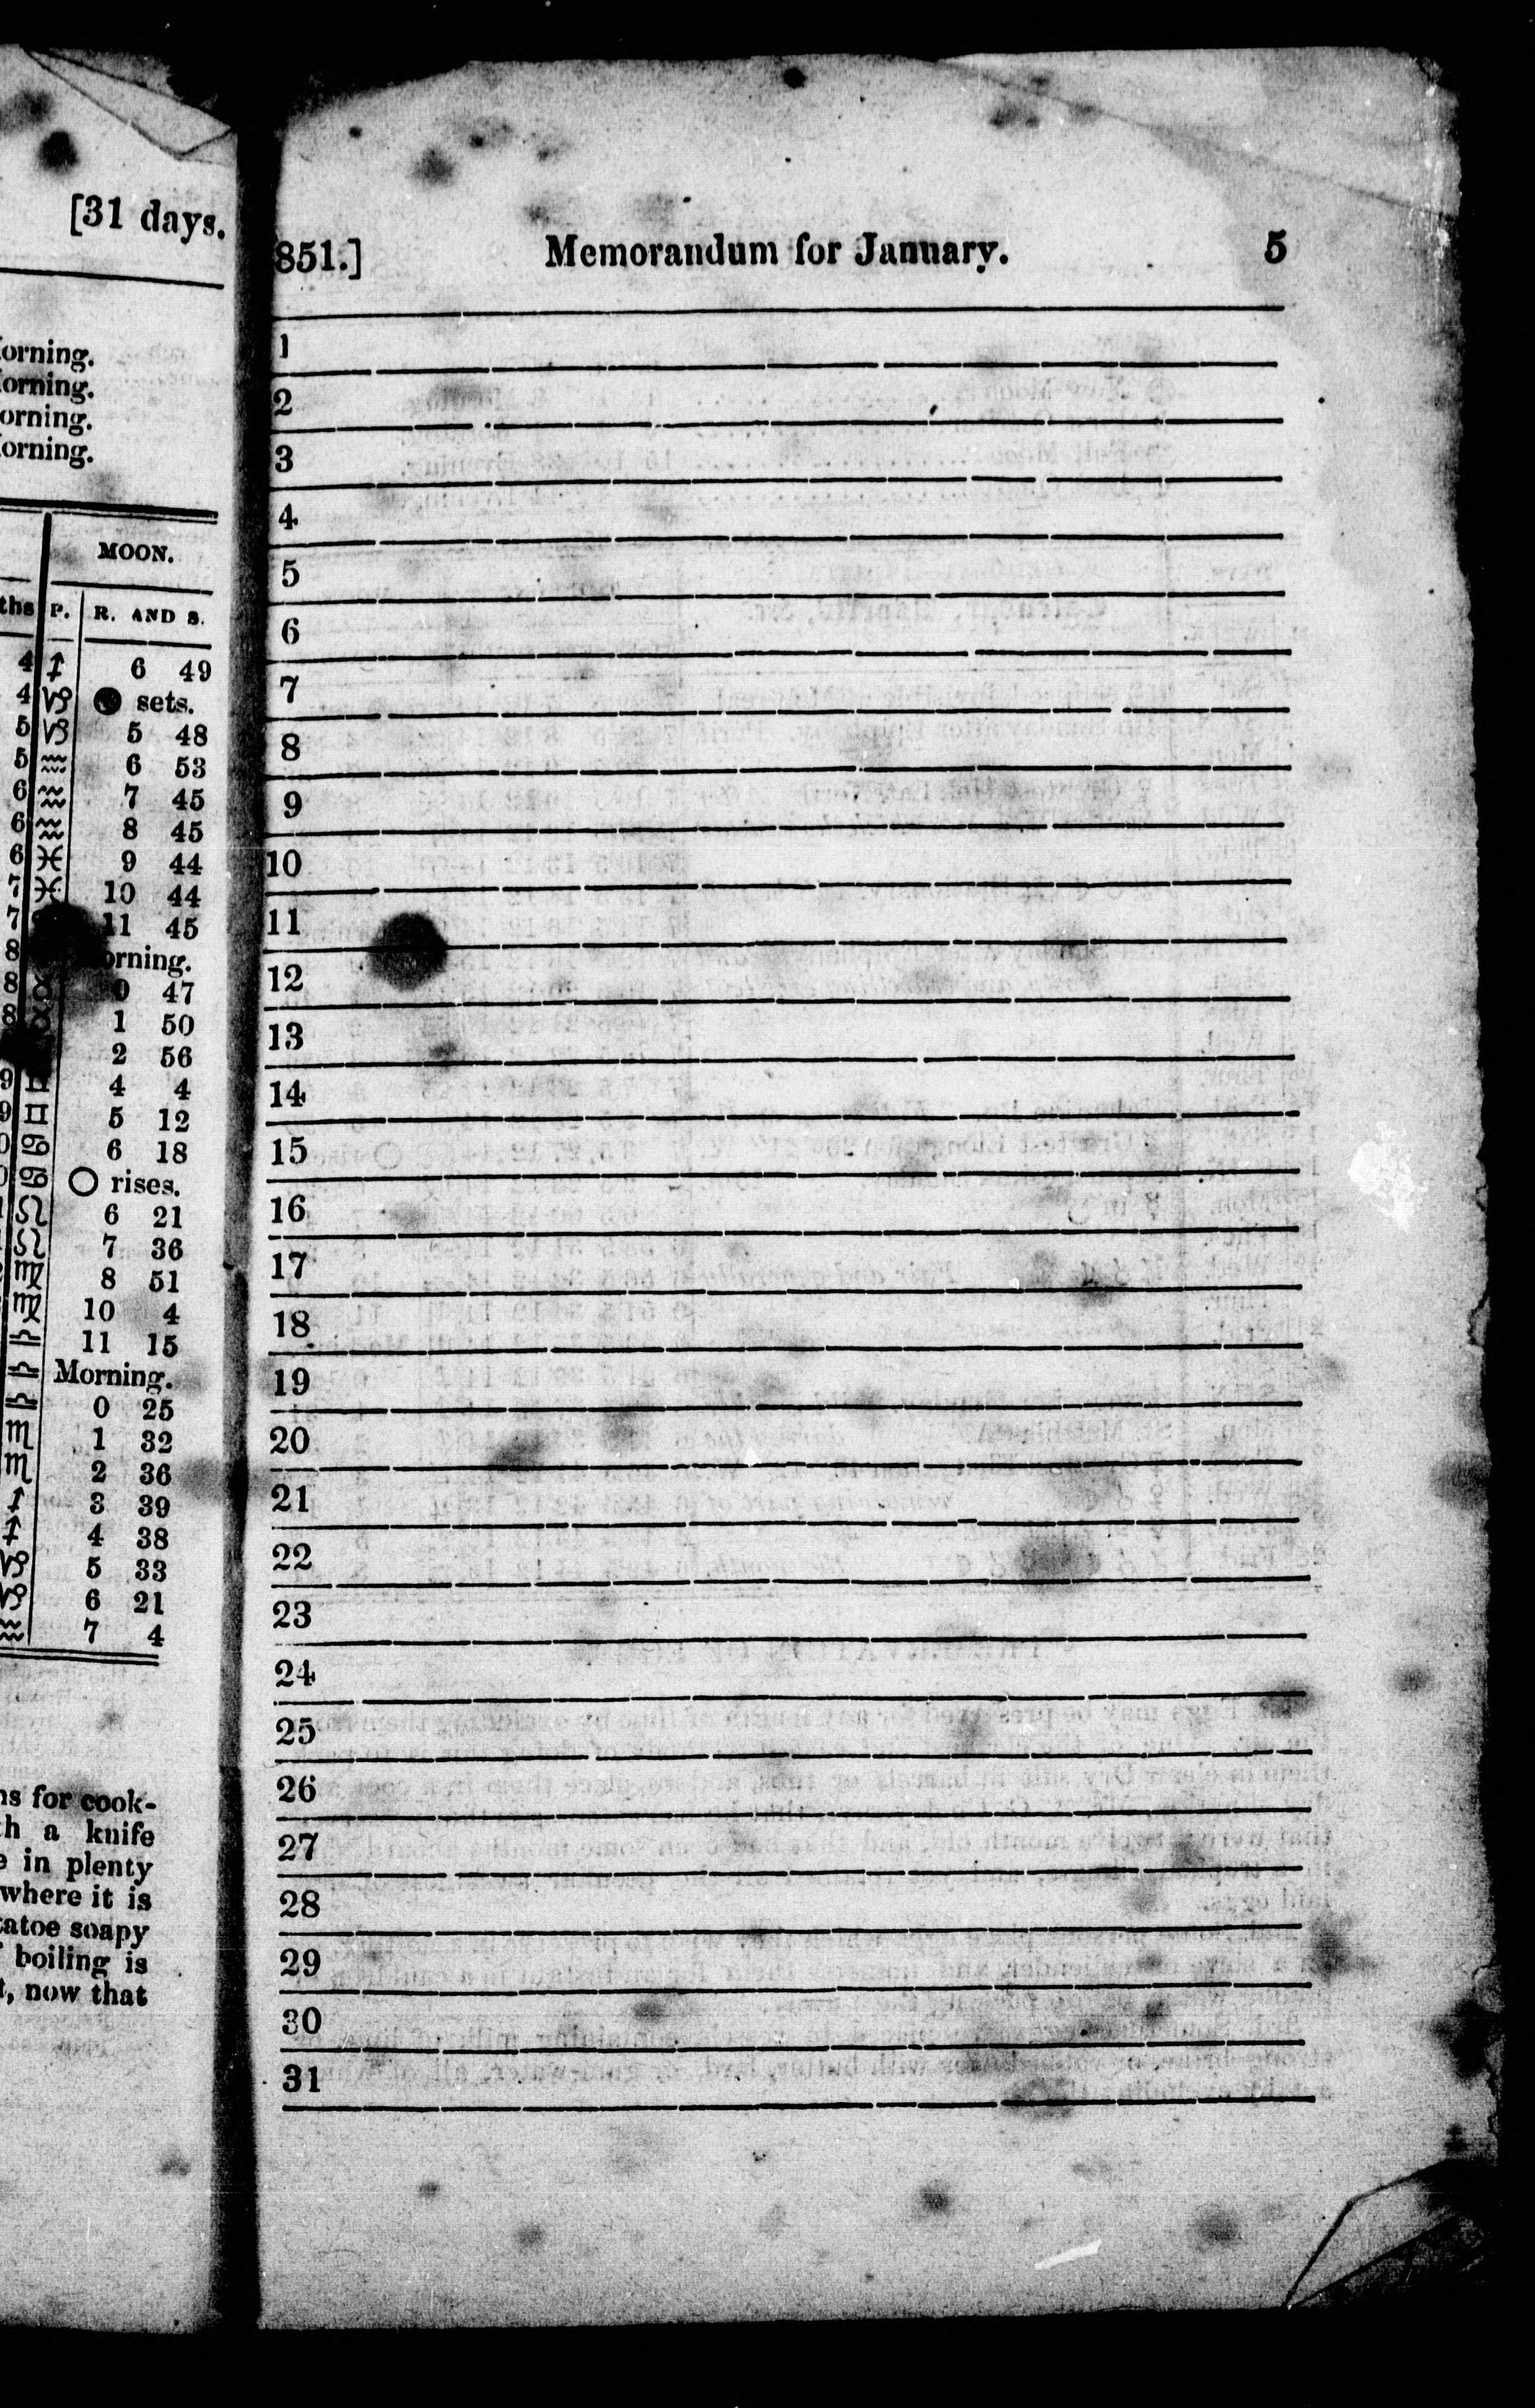 [31 days.
orning.
orning.
orning.
orning.
MOON.
ths P. R. AND S.
4 ♐ 6 49
4 ♑ sets.
5 ♑ 5 48
5 ♒ 6 53
6 ♒ 7 45
6 ♒ 8 45
6 ♓ 9 44
7 ♓ 10 44
7 11 45
8 orning.
8 ♉ 0 47
8 ♉ 1 50
2 56
9 ♊ 4 4
9 ♊ 5 12
0 ♋ 6 18
0 ♋ ○ rises.
♌ 6 21
♌ 7 36
♍ 8 51
♍ 10 4
♎ 11 15
♎ Morning.
♎ 0 25
♏ 1 32
♏ 2 36
♐ 3 39
♐ 4 38
♑ 5 33
♑ 6 21
♒ 7 4
ns for cook-
th a knife
e in plenty
where it is
tatoe soapy
f boiling is
t, now that
851.] Memorandum for January. 5
1
2
3
4
5
6
7
8
9
10
11
12
13
14
15
16
17
18
19
20
21
22
23
24
25
26
27
28
29
30
31